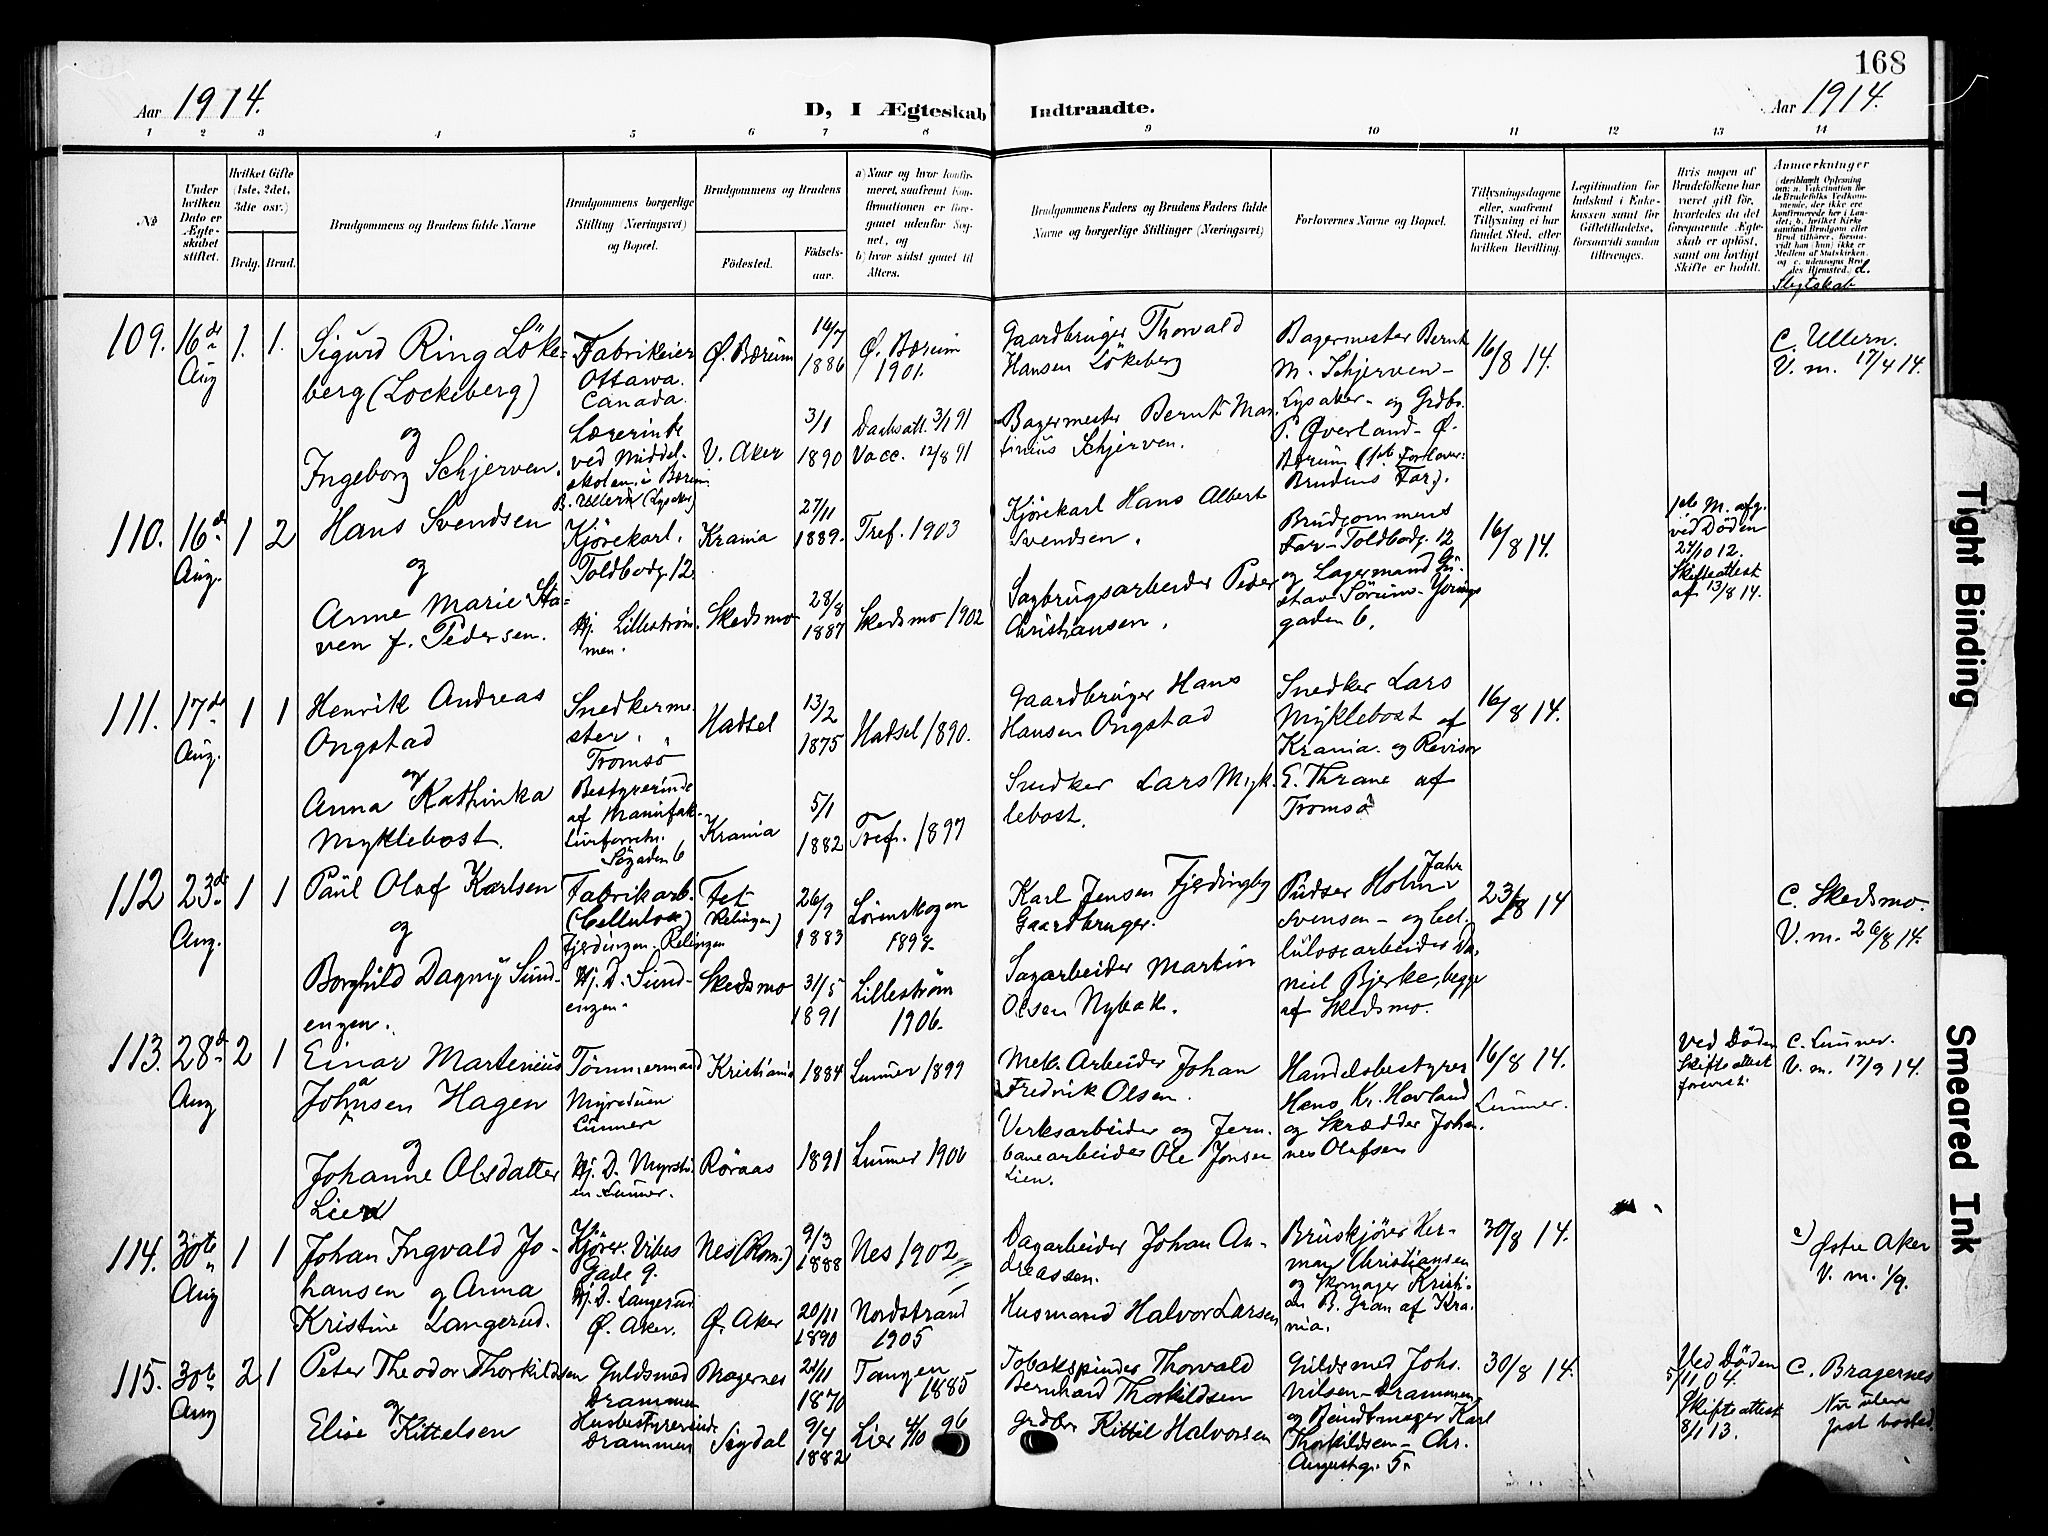 168
Aar 1914.
D, I Ægteskab Indtraadte.
Aar 1914.
1 2 3 4 5 6 7 8 9 10 11 12 13 14
No
Under hvilken Dato er Ægteskabet stiftet.
Hvilket Gifte (1ste, 2det, 3die osv.)
Brdg. Brud.
Brudgommens og Brudens fulde Navne
Brudgommens borgerlige Stilling (Næringsvei) og Bopæl.
Brudgommens og Brudens
Fødested.
Fødselsaar.
a) Naar og hvor konfirmeret, saafremt Konfirmationen er foregaaet udenfor Sognet, og
b) hvor sidst gaaet til Alters.
Brudgommens Faders og Brudens Faders fulde Navne og borgerlige Stillinger (Næringsvei)
Forlovernes Navne og Bopæl.
Tillysningsdagene eller, saafremt Tillysning ei har fundet Sted, efter hvilken Bevilling.
Legitimation for Indskud i Enkekassen samt for Giftetilladelse, forsaavidt saadan tiltrænges.
Hvis nogen af Brudefolkene har været gift før, hvorledes da det foregaaende Ægteskab er opløst, samt om lovligt Skifte er holdt.
Anmærkninger
d. Slegtskab
109. 16de Aug 1. 1.
Sigurd Ring Lökeberg (Lockeberg)
og
Ingeborg Schjerven.
Fabrikeier Ottawa. Canada.
Lærerinde ved Middelskolen i Bærum
B. Ullern (Lysaker)
Ø. Bærum 1886 Ø. Bærum 1901.
V. Aker 3/1 1890 Vacc. 12/8 91
Gaardbruger Thorvald Hansen Lökeberg
Bagermester Bernt Martinius Schjerven.
Bagermester Bernt M. Schjerven - Lysaker - og Grdbr. P. Øverland - Ø. Bærum (1ste Forlover: Brudens Far).
16/8 14.
C. Ullern.
V. m. 17/4 14.
110. 16de Aug. 1 2
Hans Svendsen
og
Anne Marie Staven f. Pedersen.
Kjörekarl. Toldbodg. 12
Hj. Lilleströmmen.
Krania 27/11 1889. Tref. 1903
Skedsmo 28/8 1887 Skedsmo 1902
Kjörekarl Hans Albert Svendsen.
Sagbrugsarbeider Peder Christiansen.
Brudgommens Far - Toldbodg. 12 og Lagermand Gustav Sörum - Yoringsgaden 6.
16/8 14.
1ste M. afg. ved Döden 24/10 12. Skifteattest af 13/8 14.
111. 17de Aug. 1 1
Henrik Andreas Ongstad
og
Anna Kathinka Myklebost.
Snedkermester. Tromsö
Bestyrerinde af Manufakturforretn. Søgaden 6
Hadsel 13/2 1875 Hadsel 1890.
Krania 5/1 1882 Tref. 1897
Gaardbruger Hans Hansen Ongstad
Snedker Lars Myklebost.
Snedker Lars Myklebost af Krania. og Revisor E. Thrane af Tromsö
16/8 14.
112 23de Aug. 1 1
Paul Olaf Karlsen
og
Borghild Dagny Sundengen.
Fabrikarb. (Cellulose) Fjerdingen. Relingen
Hj. D. Sundengen.
Fet (Relingen) 26/9 1883 Lörenskogen 1898.
Skedsmo 31/5 1891 Lilleström 1906.
Karl Jensen Fjerdingby Gaardbruger.
Sagarbeider Martin Olsen Nybak.
Pudser Holm Svensen - og Cellulosearbeider Daniel Bjerke, begge af Skedsmo.
23/8 14
C. Skedsmo.
V. m. 26/8 14.
113. 28de Aug 2 1
Einar Martenius Johnsen Hagen
og
Johanne Olsdatter Lien
Tömmermand Myrstuen Lunner
Hj. D. Myrstuen Lunner.
Kristiania 1884 Lunner 1899
Röraas 1891 Lunner 1906
Mek. Arbeider Johan Fredrik Olsen.
Verksarbeider og Jernbanearbeider Ole Jonsen Lien.
Handelsbestyrer Hans Kr. Hovland og Skrædder Johannes Olafsen
16/8 14. Lunner.
Ved Döden Skifteattest forevist.
C. Lunner.
V. m. 17/9 14.
114. 30te Aug 1 1
Johan Ingvald Johansen og Anna Kristine Langerud.
Kjörer. Vibes Gade 9.
Hj. D. Langerud Ø. Aker.
Nes (Rom.) 9/3 1888 Nes 1902
Ø. Aker 20/11 1890 Nordstrand 1905
Dagarbeider Johan Andreassen.
Husmand Halvor Larsen
Bruskjörer Herman Christiansen og Skomager Kristian B. Gran af Krania.
30/8 14.
c) Østre Aker
V. m. 1/9.
115. 30te Aug 2 1
Peter Theodor Thorkildsen
og
Elise Kittelsen
Guldsmed Drammen
Husbestyrerinde Drammen
Bragernes 1870 Tangen 1885
Sigdal 9/4 1882 Lier 4/10 96
Tobakspinder Thorvald Bernhard Thorkildsen
Grdbr. Kittil Halvorsen
Guldsmed Johs. Nilsen - Drammen og Bundtmager Karl Thorkildsen - Chr. Augustg. 5.
30/8 14.
Ved Döden 5/11 04. Skifteattest 8/1 13.
C. Bragernes
Nu uden fast bosted.
Tight Binding
Smeared Ink